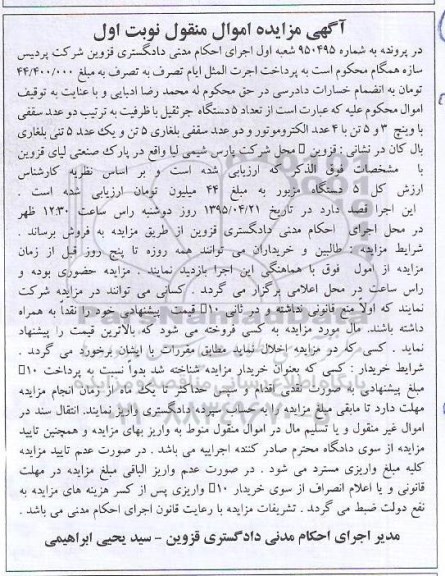 آگهی مزایده اموال منقول نوبت اول
در پرونده به شماره ۹۵۰۴۹۵ شعبه اول اجرای احکام مدنی دادگستری قزوین شرکت پردیس
سازه همگام محکوم است به پرداخت اجرت المثل ایام تصرف به تصرف به مبلغ ۴۴/۴۰۰/۰۰۰
تومان به انضمام خسارات دادرسی در حق محکوم له محمد رضا ادبایی و با عنایت به توقیف
اموال محکوم علیه که عبارت است از تعداد ۵ دستگاه جرثقیل با ظرفیت به ترتیب دو عدد سقفی
با وینچ ۳ و ۵ تن با ۴ عدد الکتروموتور و دو عدد سقفی بلغاری ۵ تن و یک عدد ۵ تنی بلغاری
بال کان در نشانی : قزوین محل شرکت پارس شیمی لیا واقع در پارک صنعتی لیای قزوین
با مشخصات فوق الذکر که ارزیابی شده است و بر اساس نظریه کارشناس
ارزش کل ۵ دستگاه مزبور به مبلغ ۴۴ میلیون تومان ارزیابی شده است .
این اجرا قصد دارد در تاریخ ۱۳۹۵/۰۴/۲۱ روز دوشنبه راس ساعت ۱۲:۳۰ ظهر
در محل اجرای احکام مدنی دادگستری قزوین از طریق مزایده به فروش برساند .
شرایط مزایده : طالبین و خریداران می توانند همه روزه تا پنج روز قبل از زمان
مزایده از اموال فوق با هماهنگی این اجرا بازدید نمایند . مزایده حضوری بوده و
راس ساعت در محل اعلامی برگزار می گردد . کسانی می توانند در مزایده شرکت
نمایند که اولا منع قانونی نداشته و در ثانی ۱۰ قیمت پیشنهادی خود را نقداً به همراه
داشته باشند. مال مورد مزایده به کسی فروخته می شود که بالاترین قیمت را پیشنهاد
نماید . کسی که در مزایده اخلال نماید مطابق مقررات با ایشان برخورد می گردد .
شرایط خریدار : کسی که بعنوان خریدار مزایده شناخته شد بدواً نسبت به پرداخت ۱۰
مبلغ پیشنهادی به صورت نقدی اقدام و سپس حداکثر تا یک ماه از زمان انجام مزایده
مهلت دارد تا مابقی مبلغ مزایده را به حساب سپرده دادگستری واریز نمایند. انتقال سند در
اموال غیر منقول و یا تسلیم مال در اموال منقول منوط به واریز بهای مزایده و همچنین تایید
مزایده از سوی دادگاه محترم صادر کننده اجراییه می باشد . در صورت عدم تایید مزایده
کلیه مبلغ واریزی مسترد می شود . در صورت عدم واریز الباقی مبلغ مزایده در مهلت
قانونی و یا اعلام انصراف از سوی خریدار ۱۰ واریزی پس از کسر هزینه های مزایده به
نفع دولت ضبط می گردد . تشریفات مزایده با رعایت قانون اجرای احکام مدنی می باشد .
مدیر اجرای احکام مدنی دادگستری قزوین – سید یحیی ابراهیمی